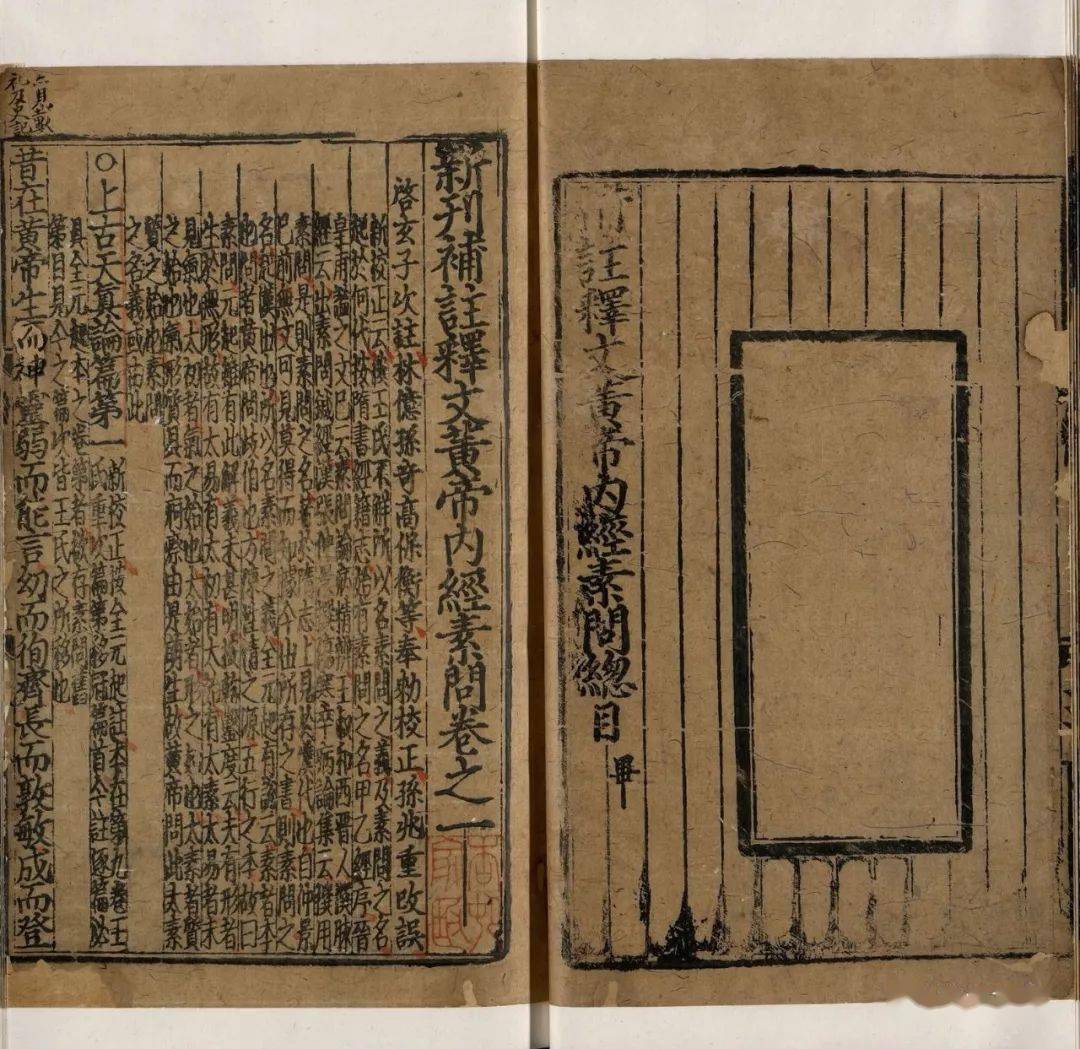 註釋文黃帝內經素問總目 畢
新刊補註釋文黃帝內經素問卷之一
啓玄子次註林億孫奇高保衡等奉勑校正孫兆重改誤
新校正云按王氏不解所以名素問之義及素問之名
起於何代按隋書經籍志始有素問之名甲乙經序晉
皇甫謐之文已云素問論病精辨王叔和西晉人撰脉
經云出素問鍼經漢張仲景撰傷寒卒病論集云撰用
素問是則素問之名著於隋志上見於漢代也自仲景
已前無文可見莫得而知據今世所存之書則素問之
名起漢世也所以名素問之義全元起有說云素者本
也問者黃帝問歧伯也方陳性情之源五行之本故曰
素問元起雖有此解義未甚明按乾鑿度云夫有形者
生於無形故有太易有太初有太始有太素太易者未
見氣也太初者氣之始也太始者形之始也太素者質
之始也氣形質具而痾瘵由是萌生故黃帝問此太素
質之始也素問
之名義或由此
○上古天眞論篇第一 新校正按全元起註本在第九卷王
氏重次篇第移冠篇首今註逐篇必
具全元起本之卷第者欲存素問舊
第目見今之篇次皆王氏之所移也
昔在黃帝生而神靈弱而能言幼而徇齊長而敦敏成而登